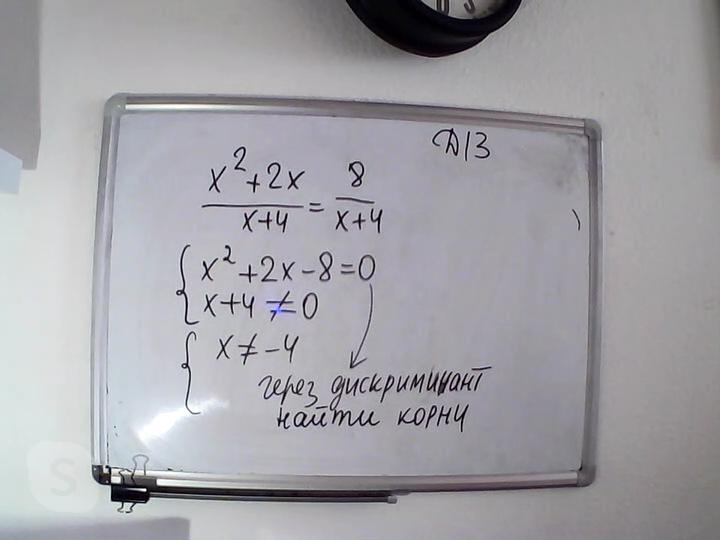 Д/З
x²+2x / x+4 = 8 / x+4
{ x²+2x-8=0
x+4≠0
{ x≠-4
через дискриминант
найти корни
S